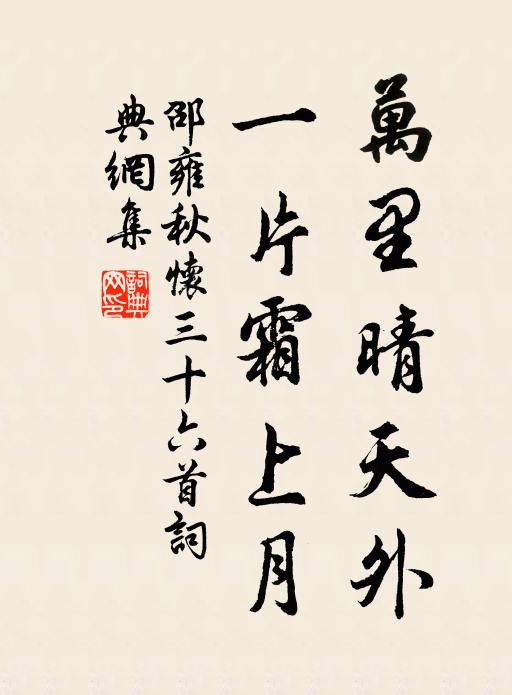 萬里晴天外
一片霜上月
邵雍秋懷三十六首詞
典網集
詞典網印